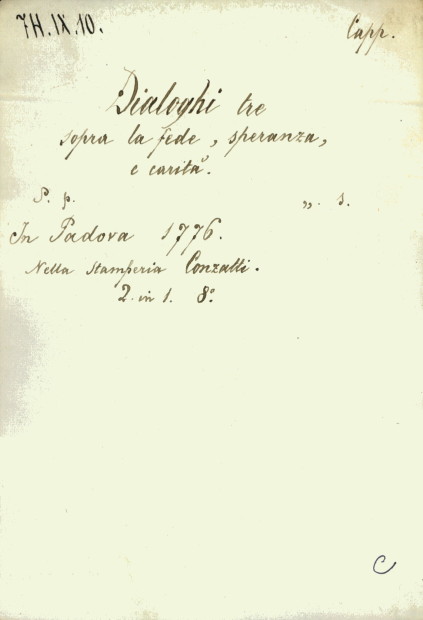 7H.IX.10. Capp.
Dialoghi tre
sopra la fede, speranza,
e carità.
P. p. „. s.
In Padova 1776.
Nella Stamperia Conzatti.
2. in 1. 8º
C